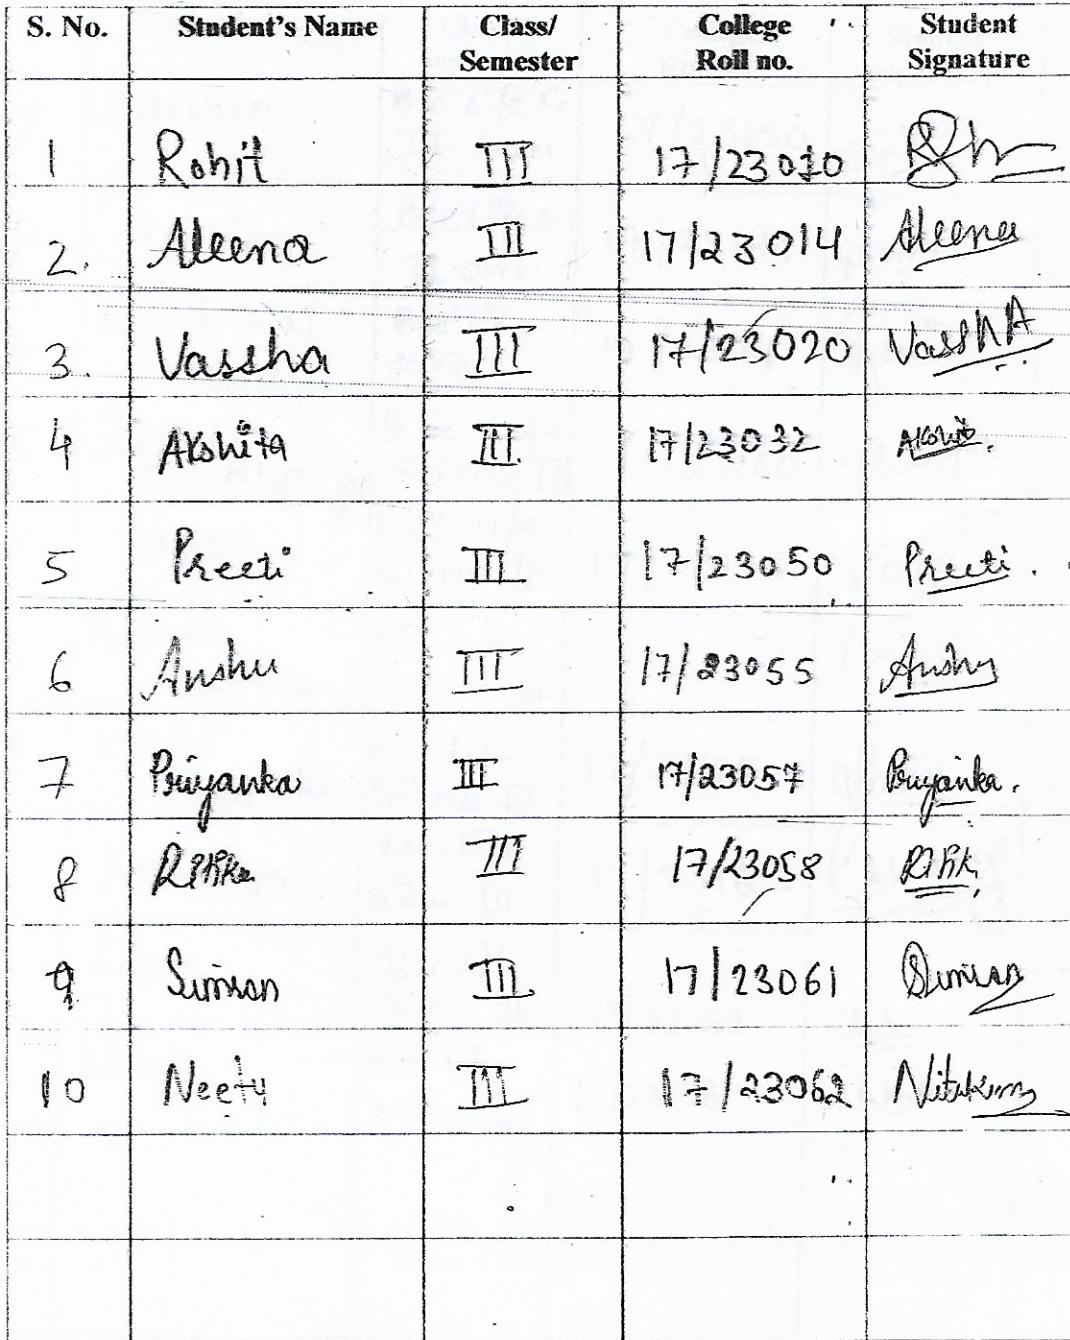 S. No. Student's Name Class/ Semester College Roll no. Student Signature
1 Rohit III 17/23010
2. Aleena III 17/23014 Aleena
3. Vassha III 17/23020 VasshA
4 Akshita III 17/23032
5 Preeti III 17/23050 Preeti.
6 Anshu III 17/23055 Anshu
7 Priyanka III 17/23057 Priyanka.
8 III 17/23058
9 Simran III 17/23061 Simran
10 Neetu III 17/23062